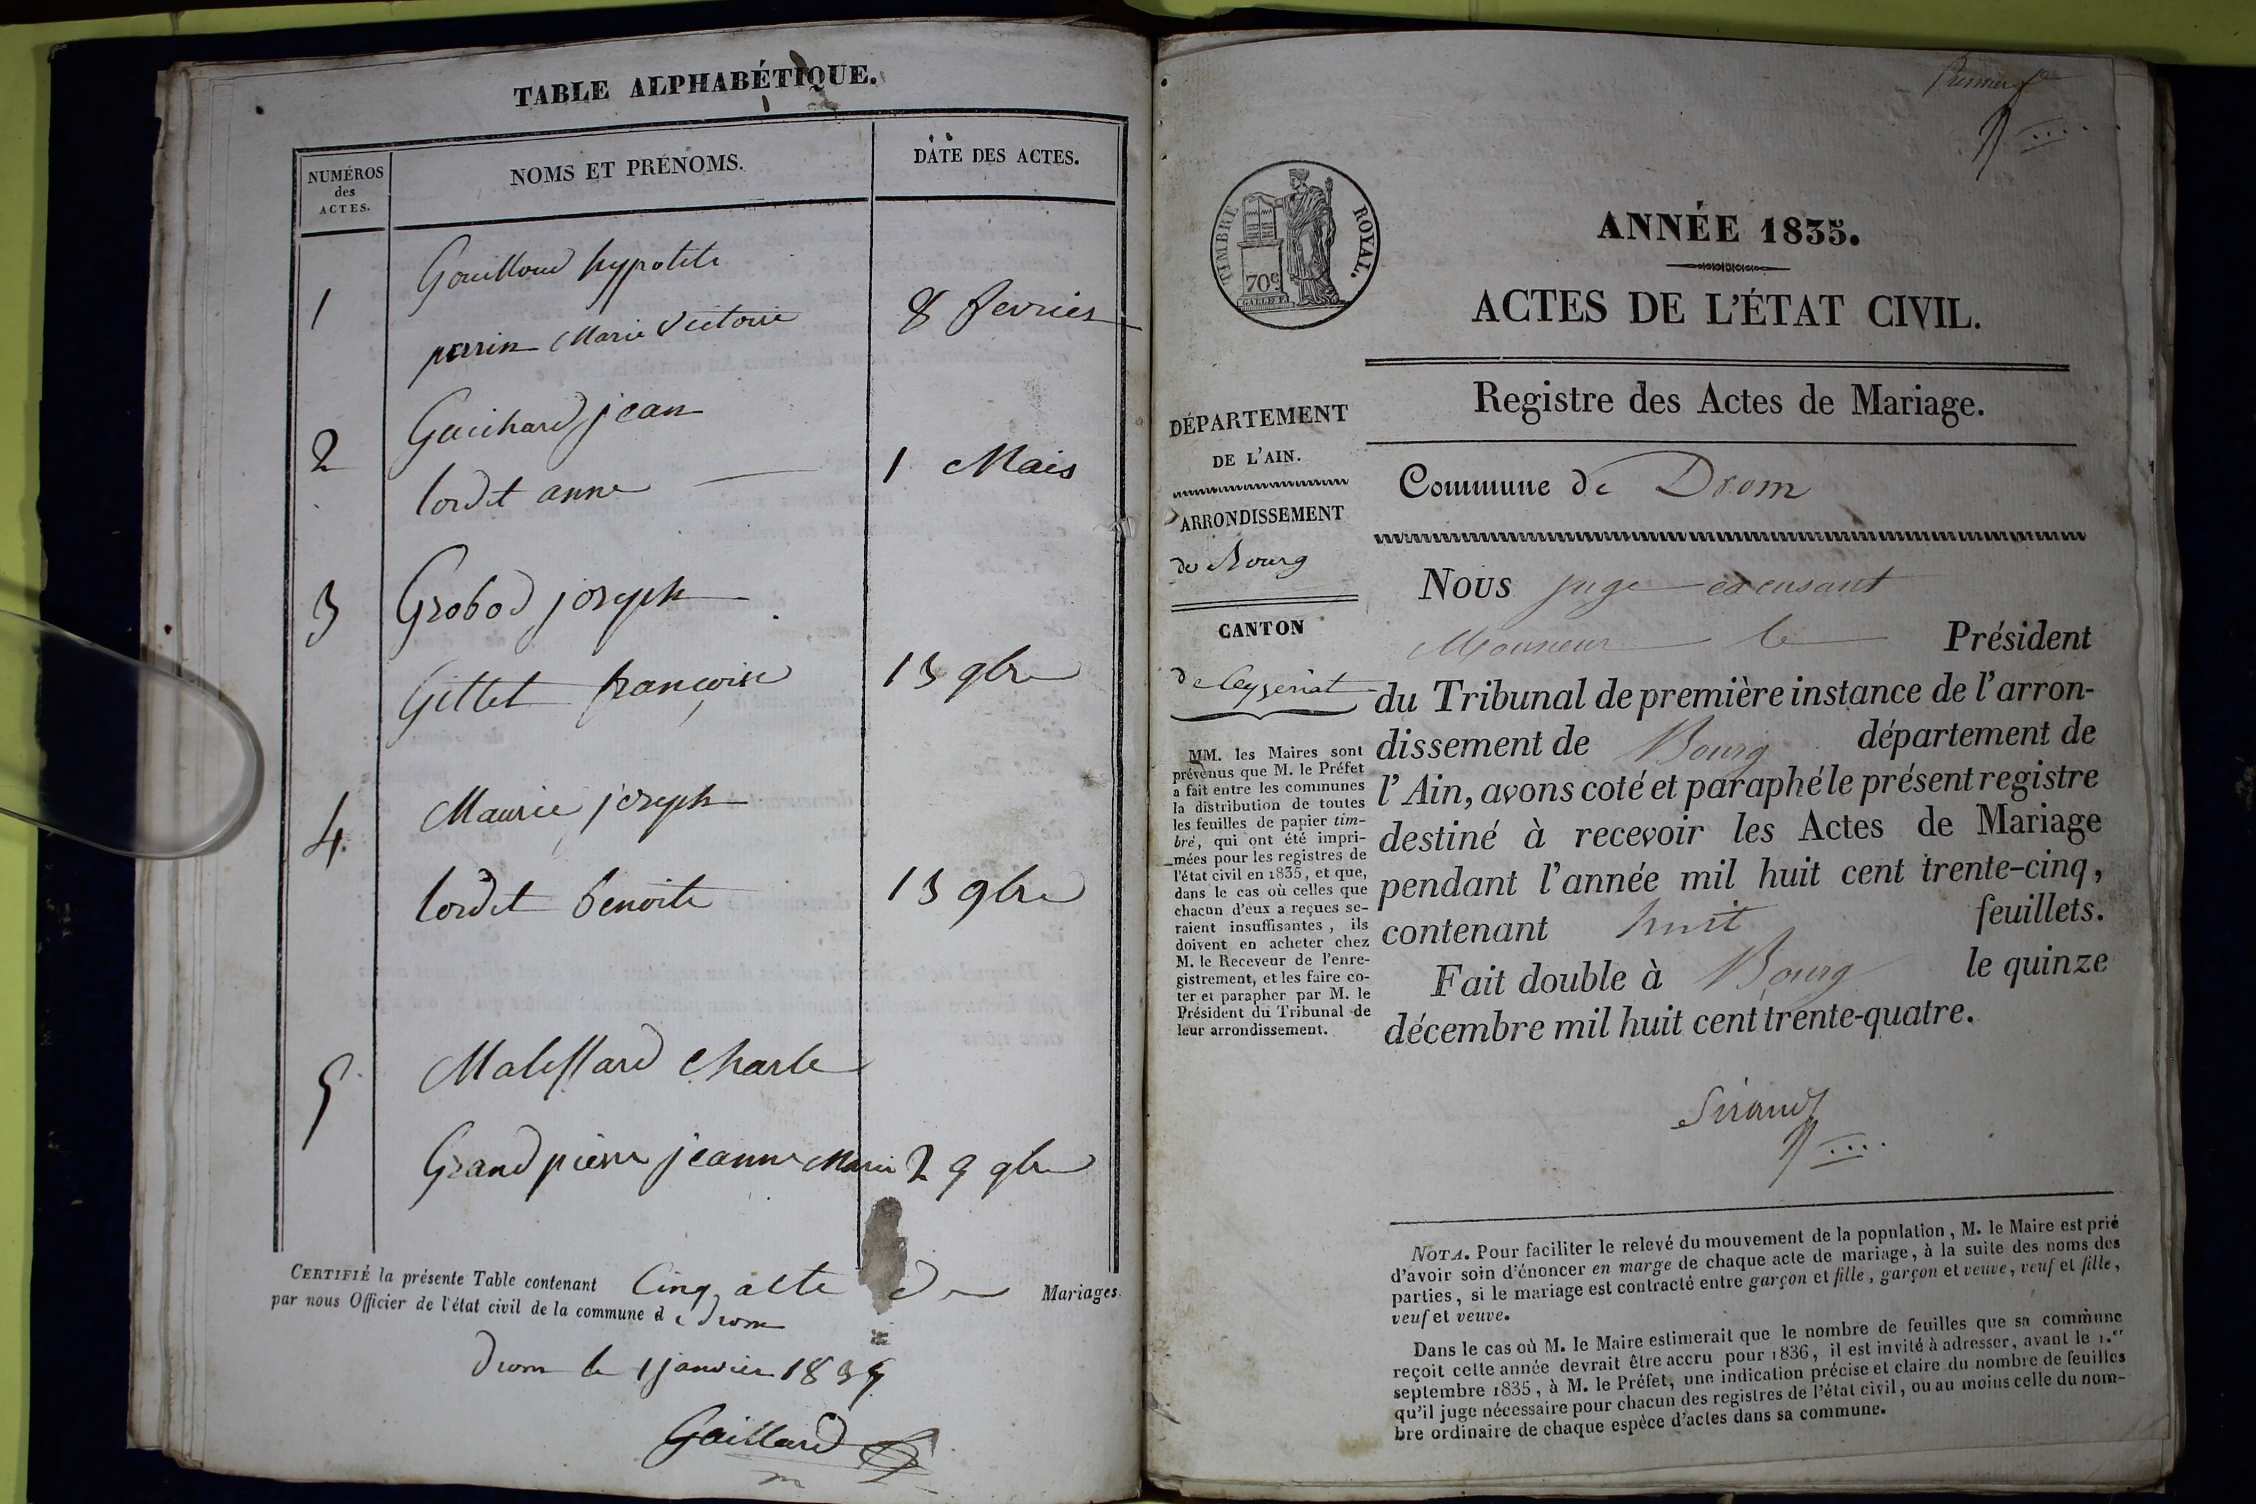 TABLE ALPHABÉTIQUE.
NUMÉROS
des
ACTES.
NOMS ET PRÉNOMS.
DATE DES ACTES.
Gouilloud hypolite
1
perrin Marie Victoire
8 fevrier
Guichard jean
2
1 Mars
lordet anne
3
Grobod joseph
Gillet françoise
13 9bre
4.
Maurice joseph
lordet benoite
13 9bre
5
Malessard Charle
Grandpierre jeanne Marie
29 9bre
CERTIFIÉ la présente Table contenant Cinq acte de Mariages.
par nous Officier de l'état civil de la commune de Drom
Drom le 1 janvier 1835
Gaillard
Premier
TIMBRE ROYAL.
70c
ANNÉE 1835.
ACTES DE L'ÉTAT CIVIL.
Registre des Actes de Mariage.
DÉPARTEMENT
DE L'AIN.
ARRONDISSEMENT
de Bourg
CANTON
de Ceyzeriat
MM. les Maires sont
prévenus que M. le Préfet
a fait entre les communes
la distribution de toutes
les feuilles de papier tim-
bré, qui ont été impri-
mées pour les registres de
l'état civil en 1835, et que,
dans le cas où celles que
chacun d'eux a reçues se-
raient insuffisantes, ils
doivent en acheter chez
M. le Receveur de l'enre-
gistrement, et les faire co-
ter et parapher par M. le
Président du Tribunal de
leur arrondissement.
Commune de Drom
Nous juge excusant
Monsieur le Président
du Tribunal de première instance de l'arron-
dissement de Bourg département de
l'Ain, avons coté et paraphé le présent registre
destiné à recevoir les Actes de Mariage
pendant l'année mil huit cent trente-cinq,
contenant huit feuillets.
Fait double à Bourg le quinze
décembre mil huit cent trente-quatre.
Sirand
NOTA. Pour faciliter le relevé du mouvement de la population, M. le Maire est prié
d'avoir soin d'énoncer en marge de chaque acte de mariage, à la suite des noms des
parties, si le mariage est contracté entre garçon et fille, garçon et veuve, veuf et fille,
veuf et veuve.
Dans le cas où M. le Maire estimerait que le nombre de feuilles que sa commune
reçoit cette année devrait être accru pour 1836, il est invité à adresser, avant le 1.er
septembre 1835, à M. le Préfet, une indication précise et claire du nombre de feuilles
qu'il juge nécessaire pour chacun des registres de l'état civil, ou au moins celle du nom-
bre ordinaire de chaque espèce d'actes dans sa commune.